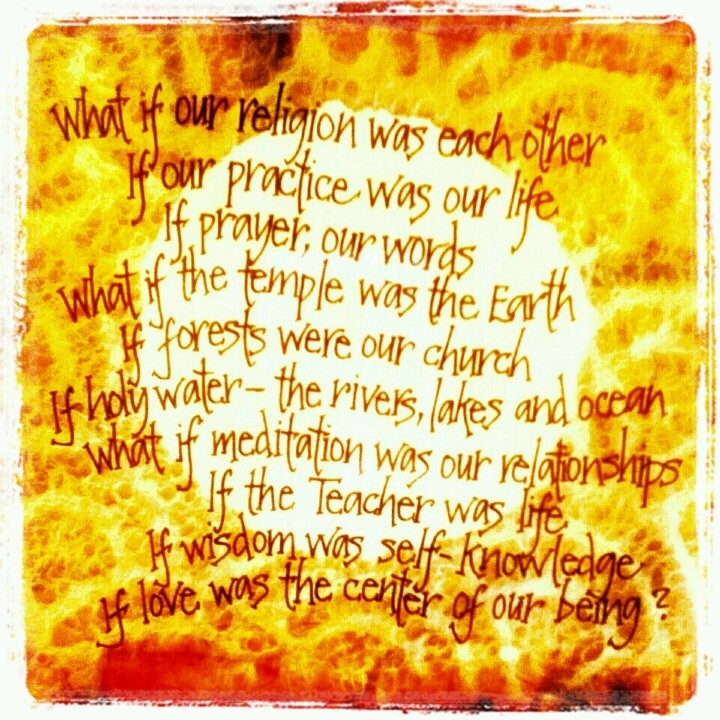 What if our religion was each other
If our practice was our life
If prayer, our words
What if the temple was the Earth
If forests were our church
If holy water - the rivers, lakes and ocean
What if meditation was our relationships
If the Teacher was life
If wisdom was self-knowledge
If love was the center of our being?